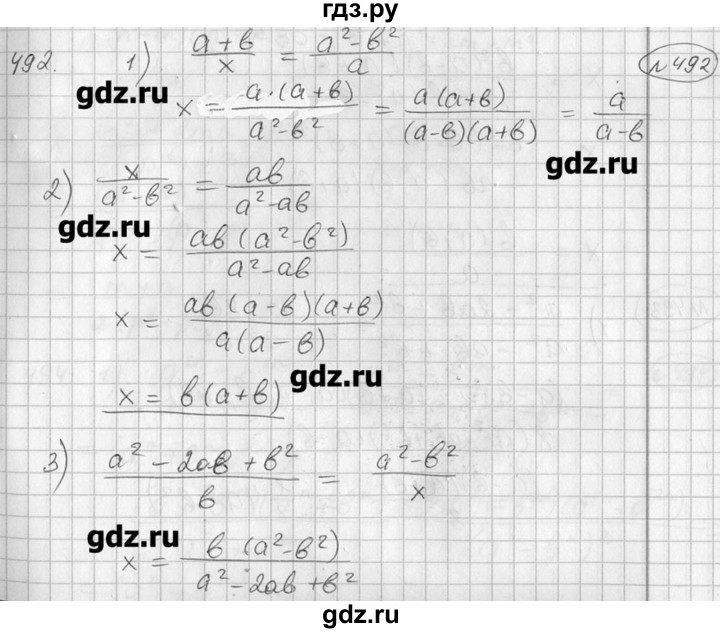 гдз.ру
492. 1) (a+b)/x = (a²-b²)/a
№492
gdz.ru
x = a·(a+b)/(a²-b²) = a(a+b)/((a-b)(a+b)) = a/(a-b)
gdz.ru
2) x/(a²-b²) = ab/(a²-ab)
gdz.ru
x = ab(a²-b²)/(a²-ab)
x = ab(a-b)(a+b)/(a(a-b))
gdz.ru
x = b(a+b)
3) (a²-2ab+b²)/b = (a²-b²)/x
gdz.ru
x = b(a²-b²)/(a²-2ab+b²)
gdz.ru